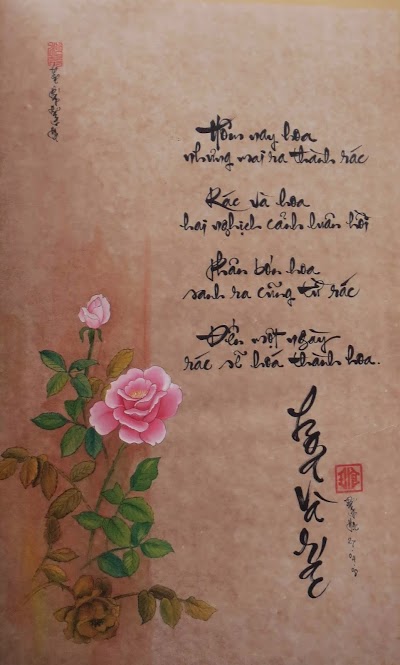 Hôm nay hoa
nhưng mai ra thành rác
Rác và hoa
hai nghịch cảnh luân hồi
Phân bón hoa
sanh ra cũng từ rác
Đến một ngày
rác sẽ hoá thành hoa.
Hoa
và
rác